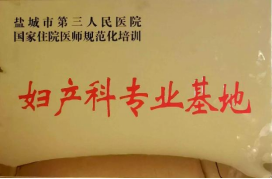 盐城市第三人民医院
国家住院医师规范化培训
妇产科专业基地